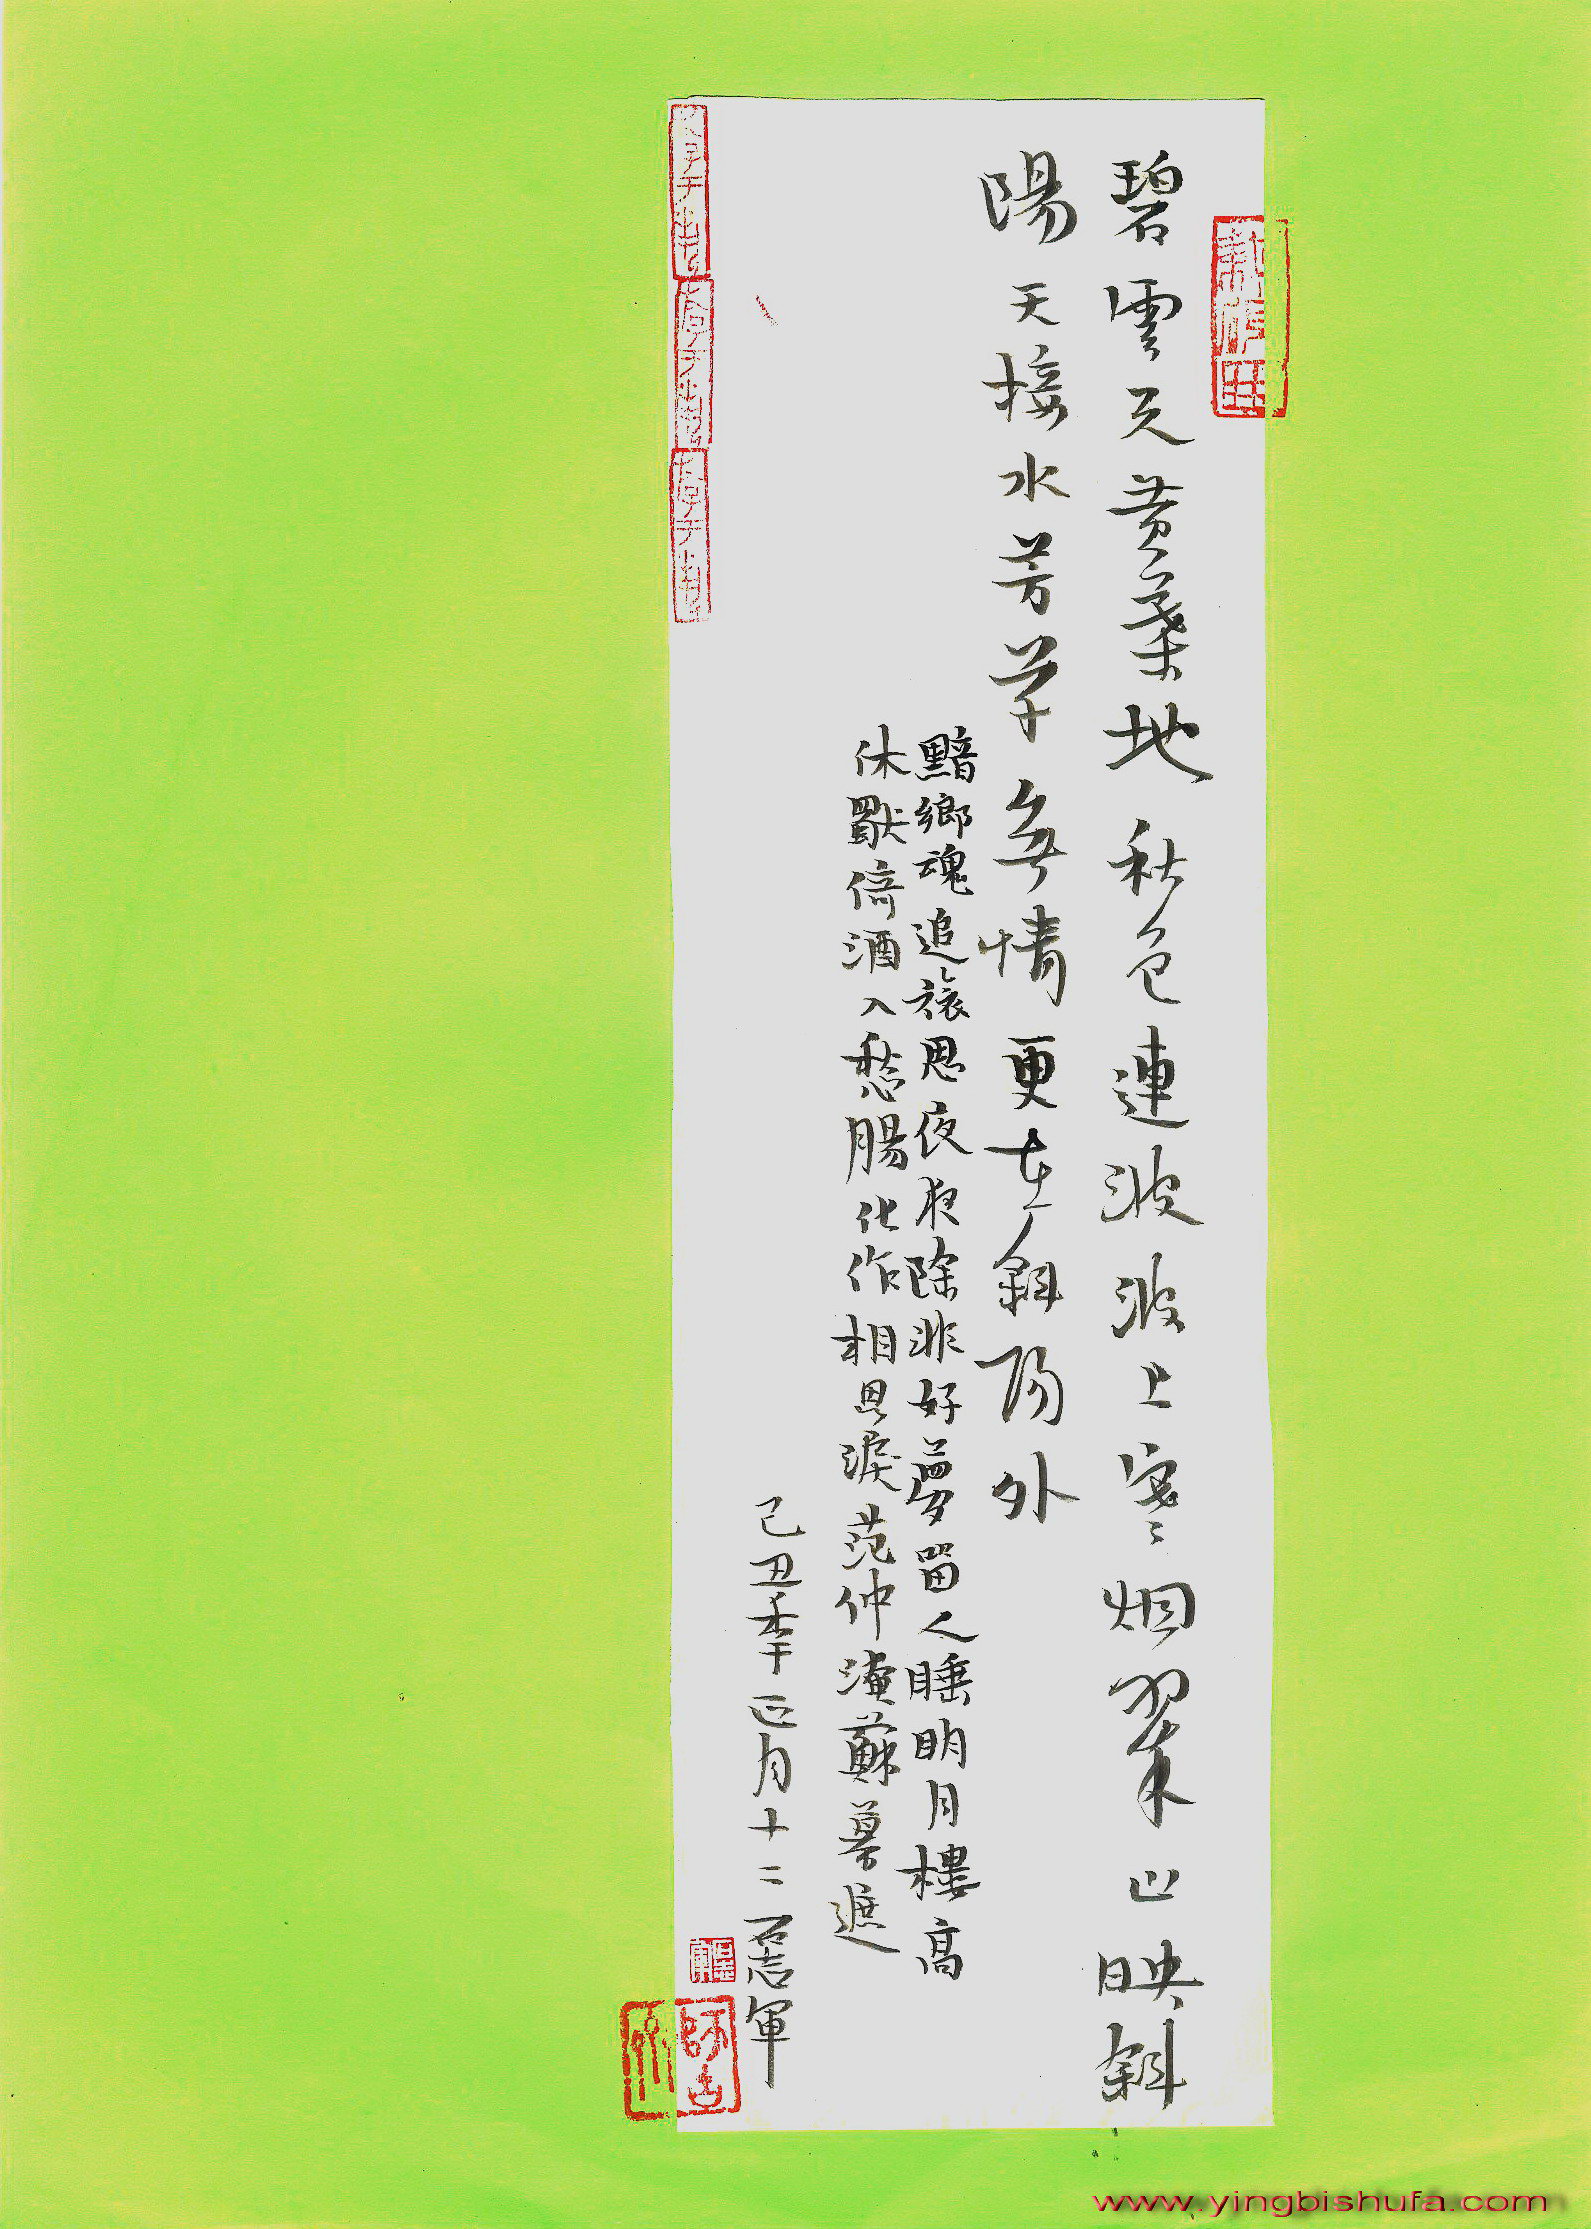 碧雲天黄葉地秋色連波波上寒烟翠山映斜
陽天接水芳草無情更在斜陽外
黯鄉魂追旅思夜夜除非好夢留人睡明月樓高
休獨倚酒入愁腸化作相思淚范仲淹蘇幕遮
己丑年正月十二石志軍
www.yingbishufa.com